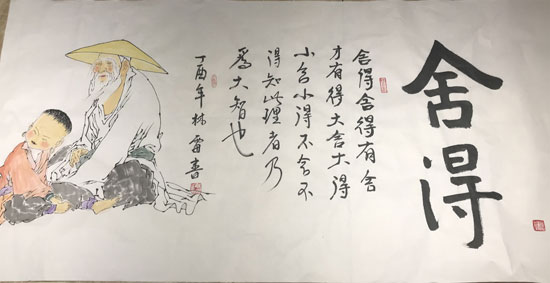 舍得
舍得舍得有舍
才有得大舍大得
小舍小得不舍不
得知此理者乃
為大智也
丁酉年林雷書